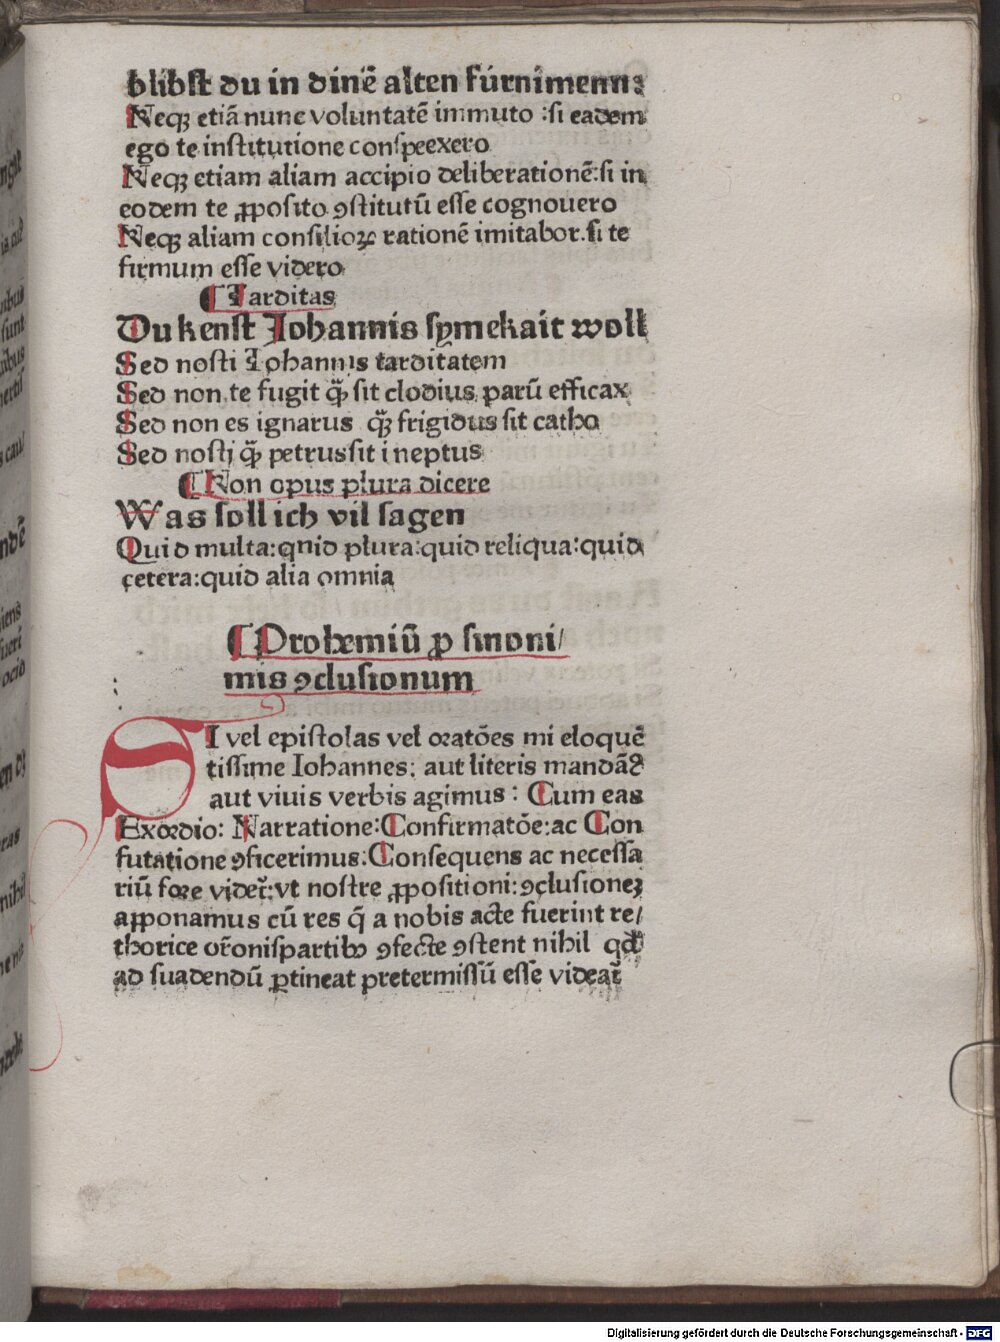 blibst du in dinē alten fúrnimenn:
Neqꝫ etiā nunc voluntatē immuto :si eadem
ego te institutione conspeexero
Neqꝫ etiam aliam accipio deliberationē:si in
eodem te ꝓposito ꝯstitutū esse cognouero
Neqꝫ aliam consilioꝝ rationē imitabor.si te
firmum esse videro
¶ Tarditas
Du kenst Johannis symekait woll
Sed nosti Iohannis tarditatem
Sed non te fugit q̃ꝫ sit clodius parū efficax
Sed non es ignarus q̃ꝫ frigidus sit catho
Sed nosti q̃ꝫ petrus sit ineptus
¶ Non opus plura dicere
Was soll ich vil sagen
Quid multa:qnid plura:quid reliqua:quid
cetera:quid alia omnia
¶ Prohemiū ꝓ sinoni/
mis ꝯclusionum
SI vel epistolas vel oratōes mi eloquē
tissime Iohannes: aut literis mandāꝰ
aut viuis verbis agimus : Cum eas
Exordio: Narratione:Confirmatōe:ac Con
futatione ꝯficerimus:Consequens ac necessa
riū fore videt̃:vt nostre ꝓpositioni:ꝯclusioneꝫ
apponamus cū res q̄ a nobis acte fuerint re/
thorice or̃onis partibꝰ ꝯfecte ꝯstent nihil qd̓
ad suadendū ꝑtineat pretermissū esse videat̃
Digitalisierung gefördert durch die Deutsche Forschungsgemeinschaft - DFG